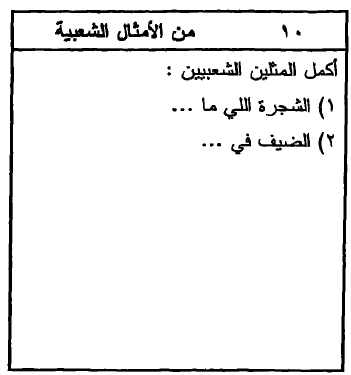 ١٠ من الأمثال الشعبية
أكمل المثلين الشعبيين :
١) الشجرة اللي ما ...
٢) الضيف في ...